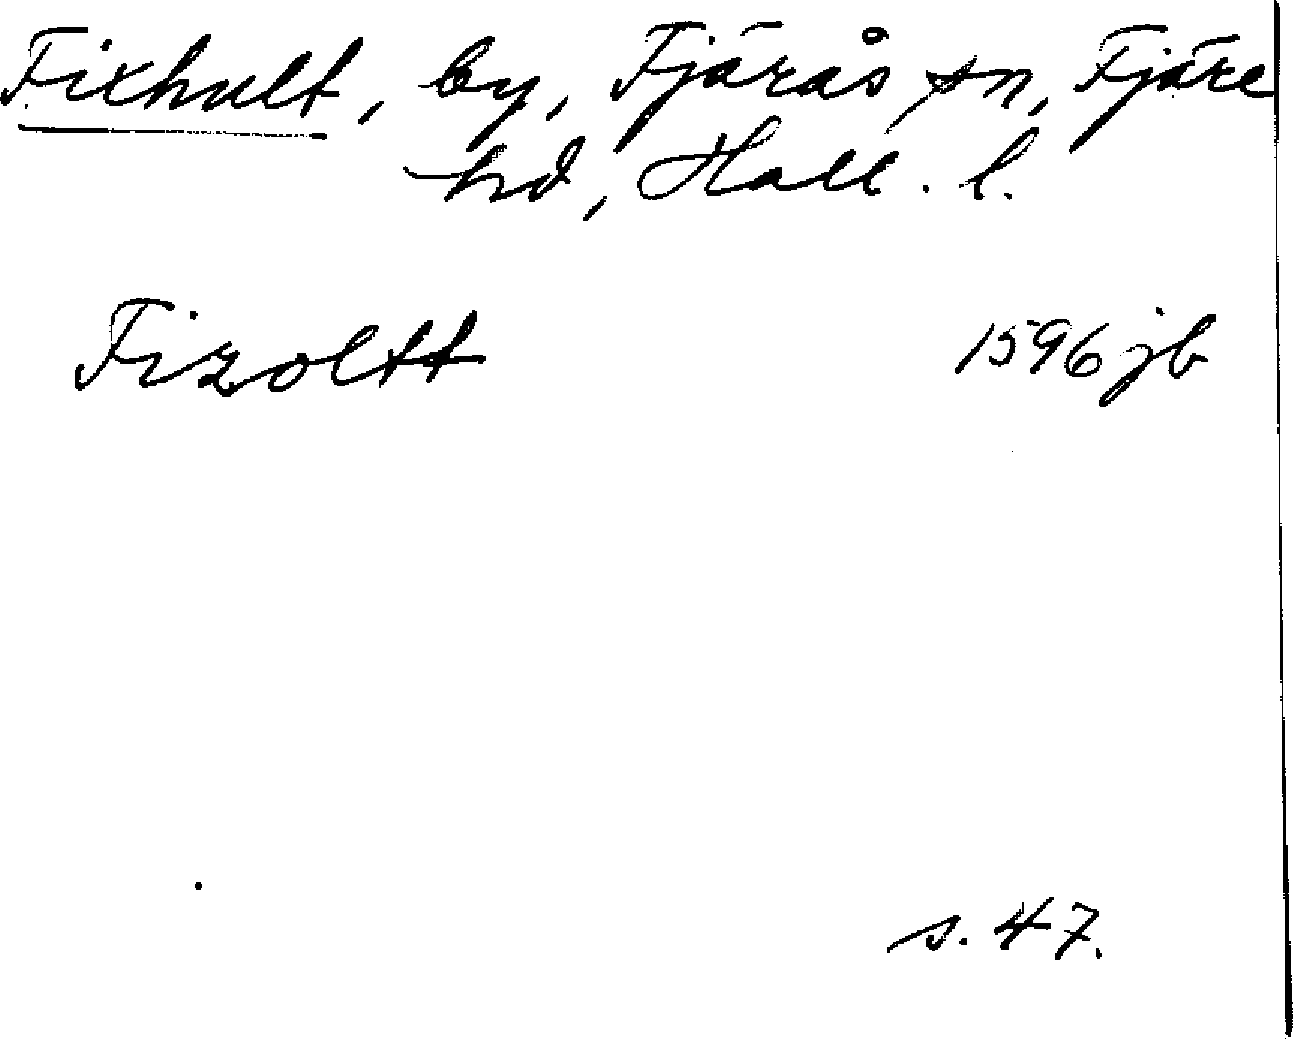 Fixhult, by, Fjärås sn, Fjäre
hd, Hall. l.
Fixoltt 1596 jb
s. 47.